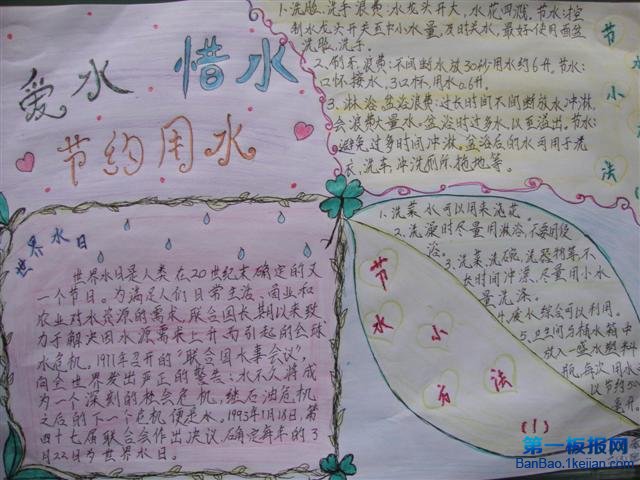 爱水 惜水
节约用水
1.洗脸、洗手浪费:水龙头开大,水花四溅。节水:控
制水龙头开关至中小水量,及时关水,最好使用面盆
洗脸、洗手。
2.刷牙浪费:不间断水放30秒,用水约6升。节水:
口杯接水,3口杯,用水0.6升。
3.淋浴、盆浴浪费:过长时间不间断放水冲淋,
会浪费大量水。盆浴时过多水,以至溢出。节水:
避免过多时间冲淋。盆浴后的水可用于洗
衣、洗车、冲洗厕所、拖地等。
节水小方法
世界水日
世界水日是人类在20世纪末确定的又
一个节日。为满足人们日常生活、商业和
农业对水资源的需求,联合国长期以来致
力于解决因水源需求上升而引起的全球
水危机。1977年召开的“联合国水事会议”,
向全世界发出严正的警告:水不久将成
为一个深刻的社会危机,继石油危机
之后的下一个危机便是水。1993年1月18日,第
四十七届联合会作出决议,确定每年的3
月22日为世界水日。
1.洗菜水可以用来浇花。
2.洗澡时尽量用淋浴,不要用
浴。
3.洗菜、洗碗、洗器
长时间冲漂,尽量用小水
量洗涤。
4.废水综合可以利用。
5.卫卫间马桶水箱中
放入一盛水塑料
瓶,每次用水
以节约
毫升。
节水小方法
(1)
第一板报网
BanBao.1kejian.com